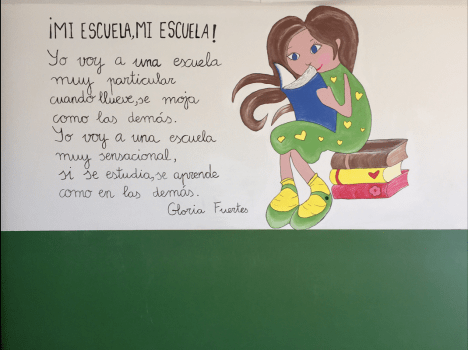 ¡MI ESCUELA, MI ESCUELA!
Yo voy a una escuela
muy particular
cuando llueve, se moja
como las demás.
Yo voy a una escuela
muy sensacional,
si se estudia, se aprende
como en las demás.
Gloria Fuertes